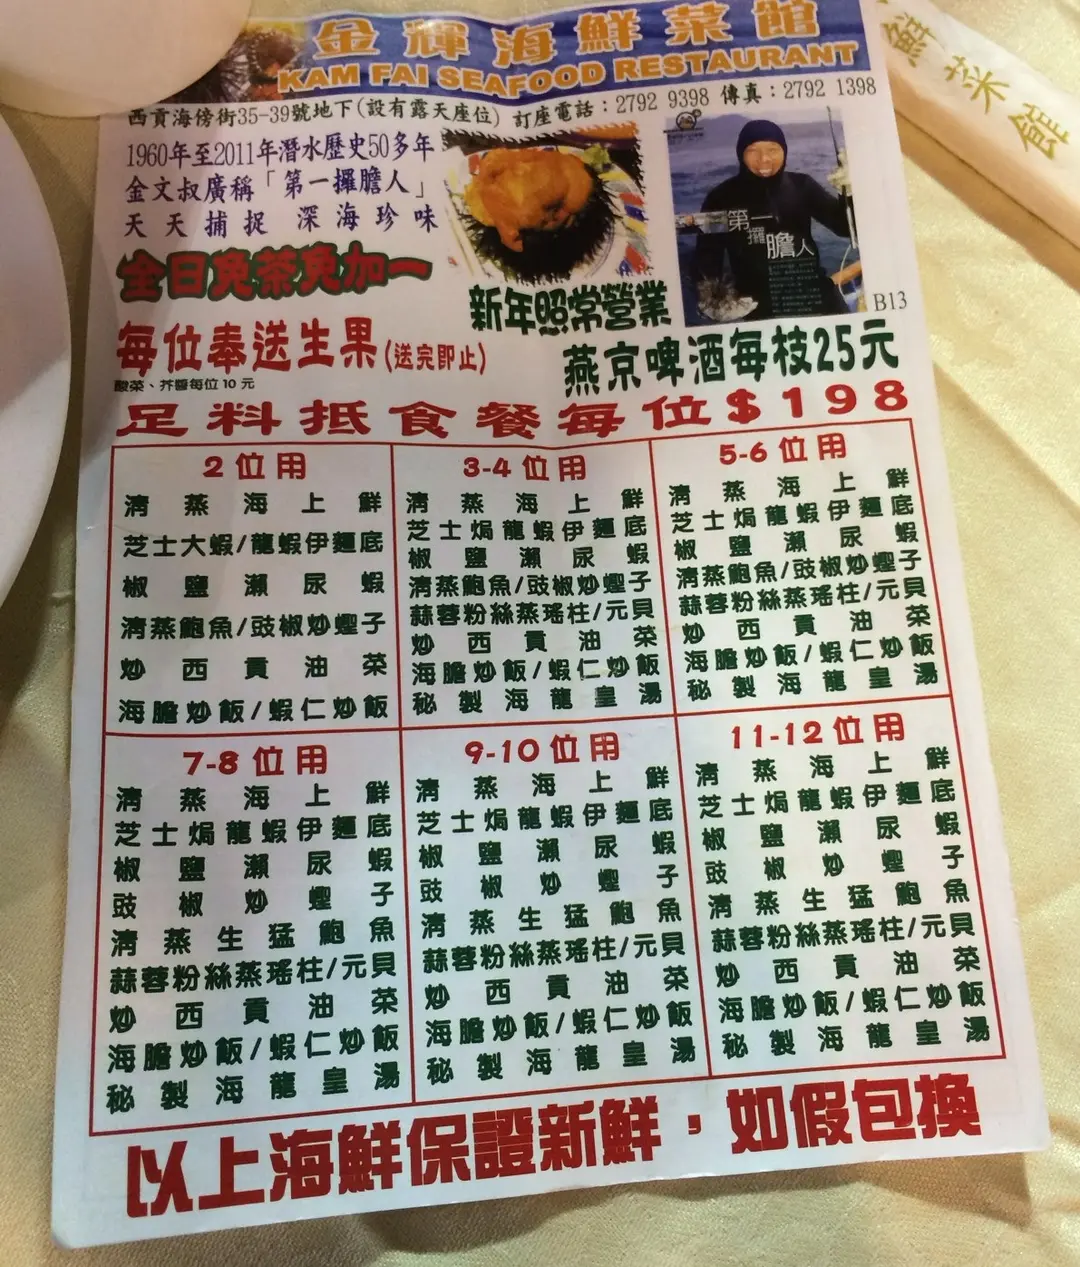 金輝海鮮菜館
KAM FAI SEAFOOD RESTAURANT
西貢海傍街35-39號地下(設有露天座位) 訂座電話：2792 9398 傳真：2792 1398
1960年至2011年潛水歷史50多年
金文叔廣稱「第一攞膽人」
天天捕捉 深海珍味
第一攞膽人
B13
全日免茶免加一
新年照常營業
每位奉送生果(送完即止)
燕京啤酒每枝25元
酸菜、芥醬每位10元
足料抵食餐每位$198
2位用
清蒸海上鮮
芝士大蝦/龍蝦伊麵底
椒鹽瀨尿蝦
清蒸鮑魚/豉椒炒蟶子
炒西貢油菜
海膽炒飯/蝦仁炒飯
3-4位用
清蒸海上鮮
芝士焗龍蝦伊麵底
椒鹽瀨尿蝦
清蒸鮑魚/豉椒炒蟶子
蒜蓉粉絲蒸瑤柱/元貝
炒西貢油菜
海膽炒飯/蝦仁炒飯
秘製海龍皇湯
5-6位用
清蒸海上鮮
芝士焗龍蝦伊麵底
椒鹽瀨尿蝦
清蒸鮑魚/豉椒炒蟶子
蒜蓉粉絲蒸瑤柱/元貝
炒西貢油菜
海膽炒飯/蝦仁炒飯
秘製海龍皇湯
7-8位用
清蒸海上鮮
芝士焗龍蝦伊麵底
椒鹽瀨尿蝦
豉椒炒蟶子
清蒸生猛鮑魚
蒜蓉粉絲蒸瑤柱/元貝
炒西貢油菜
海膽炒飯/蝦仁炒飯
秘製海龍皇湯
9-10位用
清蒸海上鮮
芝士焗龍蝦伊麵底
椒鹽瀨尿蝦
豉椒炒蟶子
清蒸生猛鮑魚
蒜蓉粉絲蒸瑤柱/元貝
炒西貢油菜
海膽炒飯/蝦仁炒飯
秘製海龍皇湯
11-12位用
清蒸海上鮮
芝士焗龍蝦伊麵底
椒鹽瀨尿蝦
豉椒炒蟶子
清蒸生猛鮑魚
蒜蓉粉絲蒸瑤柱/元貝
炒西貢油菜
海膽炒飯/蝦仁炒飯
秘製海龍皇湯
以上海鮮保證新鮮，如假包換
鮮菜館